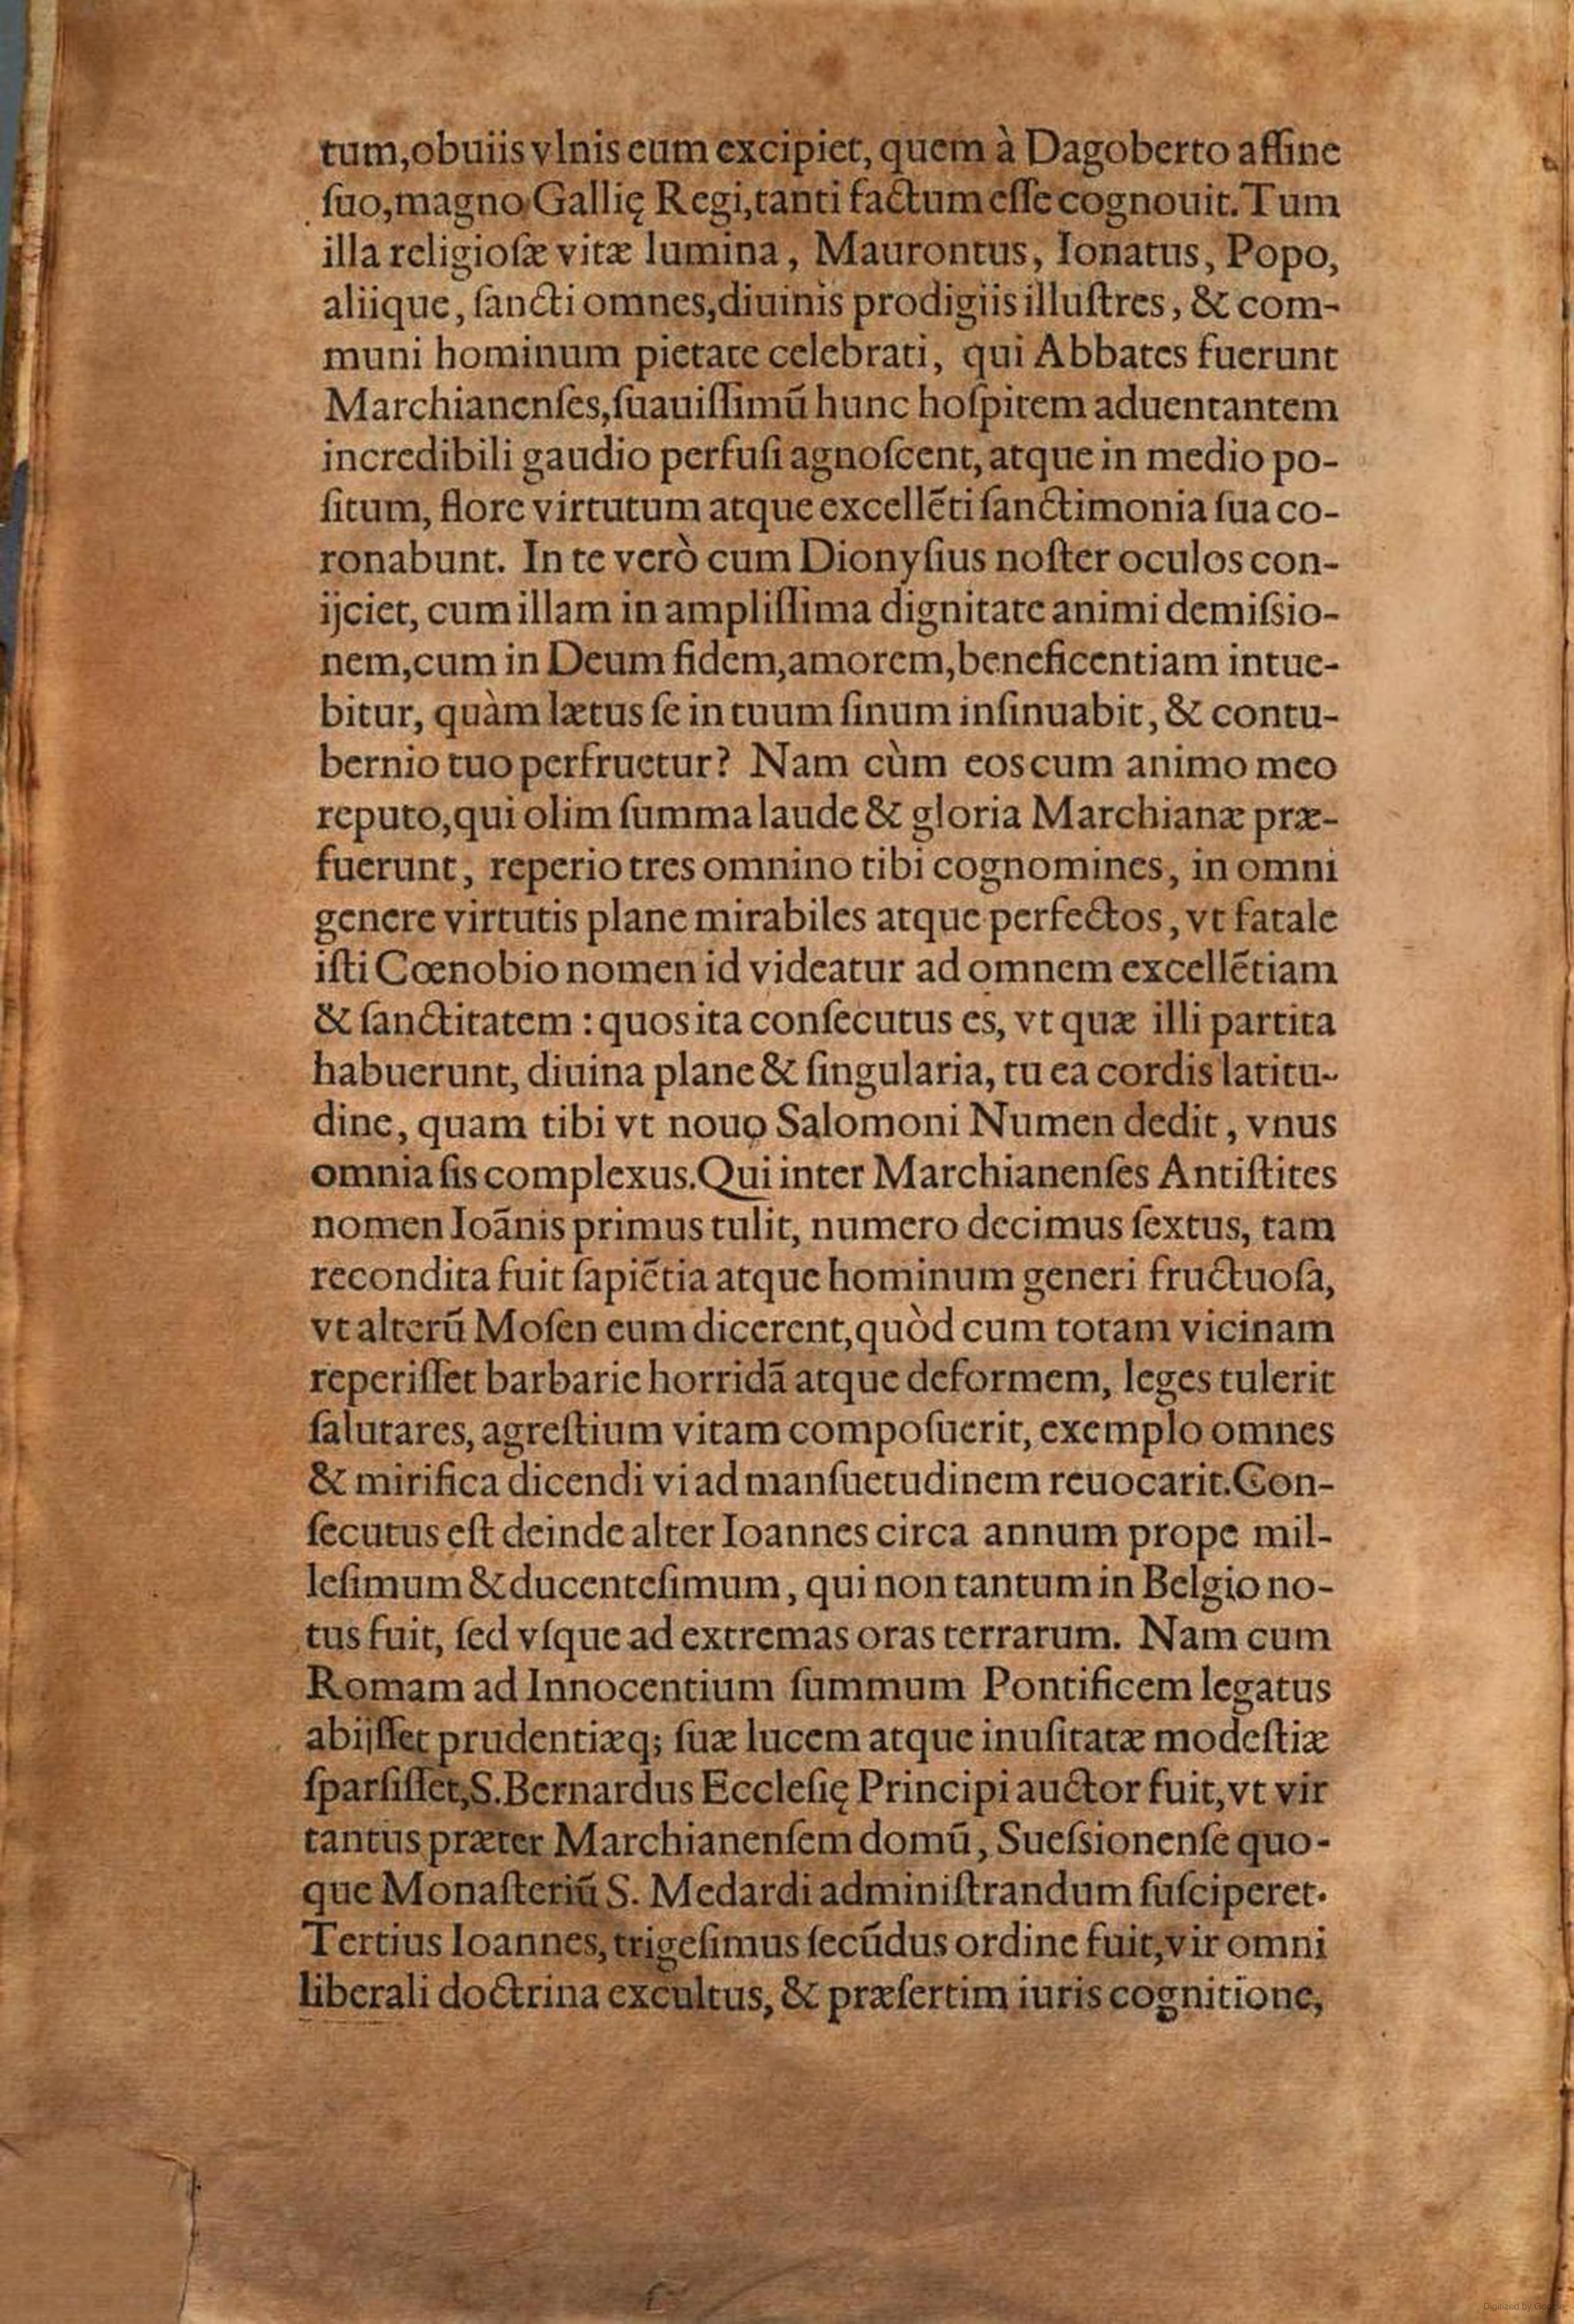 tum,obuiis vlnis eum excipiet, quem à Dagoberto affine
ſuo,magno Gallię Regi,tanti factum eſſe cognouit.Tum
illa religioſæ vitæ lumina, Maurontus, Ionatus, Popo,
aliique, ſancti omnes,diuinis prodigiis illuſtres, & com-
muni hominum pietate celebrati, qui Abbates fuerunt
Marchianenſes,ſuauiſſimū hunc hoſpitem aduentantem
incredibili gaudio perfuſi agnoſcent, atque in medio po-
ſitum, flore virtutum atque excellēti ſanctimonia ſua co-
ronabunt. In te verò cum Dionyſius noſter oculos con-
ijciet, cum illam in ampliſſima dignitate animi demiſsio-
nem,cum in Deum fidem,amorem,beneficentiam intue-
bitur, quàm lætus ſe in tuum ſinum inſinuabit, & contu-
bernio tuo perfruetur? Nam cùm eos cum animo meo
reputo,qui olim ſumma laude & gloria Marchianæ præ-
fuerunt, reperio tres omnino tibi cognomines, in omni
genere virtutis plane mirabiles atque perfectos, vt fatale
iſti Cœnobio nomen id videatur ad omnem excellētiam
& ſanctitatem : quos ita conſecutus es, vt quæ illi partita
habuerunt, diuina plane & ſingularia, tu ea cordis latitu-
dine, quam tibi vt nouo Salomoni Numen dedit, vnus
omnia ſis complexus.Qui inter Marchianenſes Antiſtites
nomen Ioānis primus tulit, numero decimus ſextus, tam
recondita fuit ſapiētia atque hominum generi fructuoſa,
vt alterū Moſen eum dicerent,quòd cum totam vicinam
reperiſſet barbarie horridā atque deformem, leges tulerit
ſalutares, agreſtium vitam compoſuerit, exemplo omnes
& mirifica dicendi vi ad manſuetudinem reuocarit.Con-
ſecutus eſt deinde alter Ioannes circa annum prope mil-
leſimum & ducenteſimum, qui non tantum in Belgio no-
tus fuit, ſed vſque ad extremas oras terrarum. Nam cum
Romam ad Innocentium ſummum Pontificem legatus
abijſſet prudentiæq; ſuæ lucem atque inuſitatæ modeſtiæ
ſparſiſſet,S.Bernardus Eccleſię Principi auctor fuit,vt vir
tantus præter Marchianenſem domū, Sueſsionenſe quo-
que Monaſteriū S. Medardi adminiſtrandum ſuſciperet.
Tertius Ioannes, trigeſimus ſecūdus ordine fuit,vir omni
liberali doctrina excultus, & præſertim iuris cognitione,
Digitized by Google